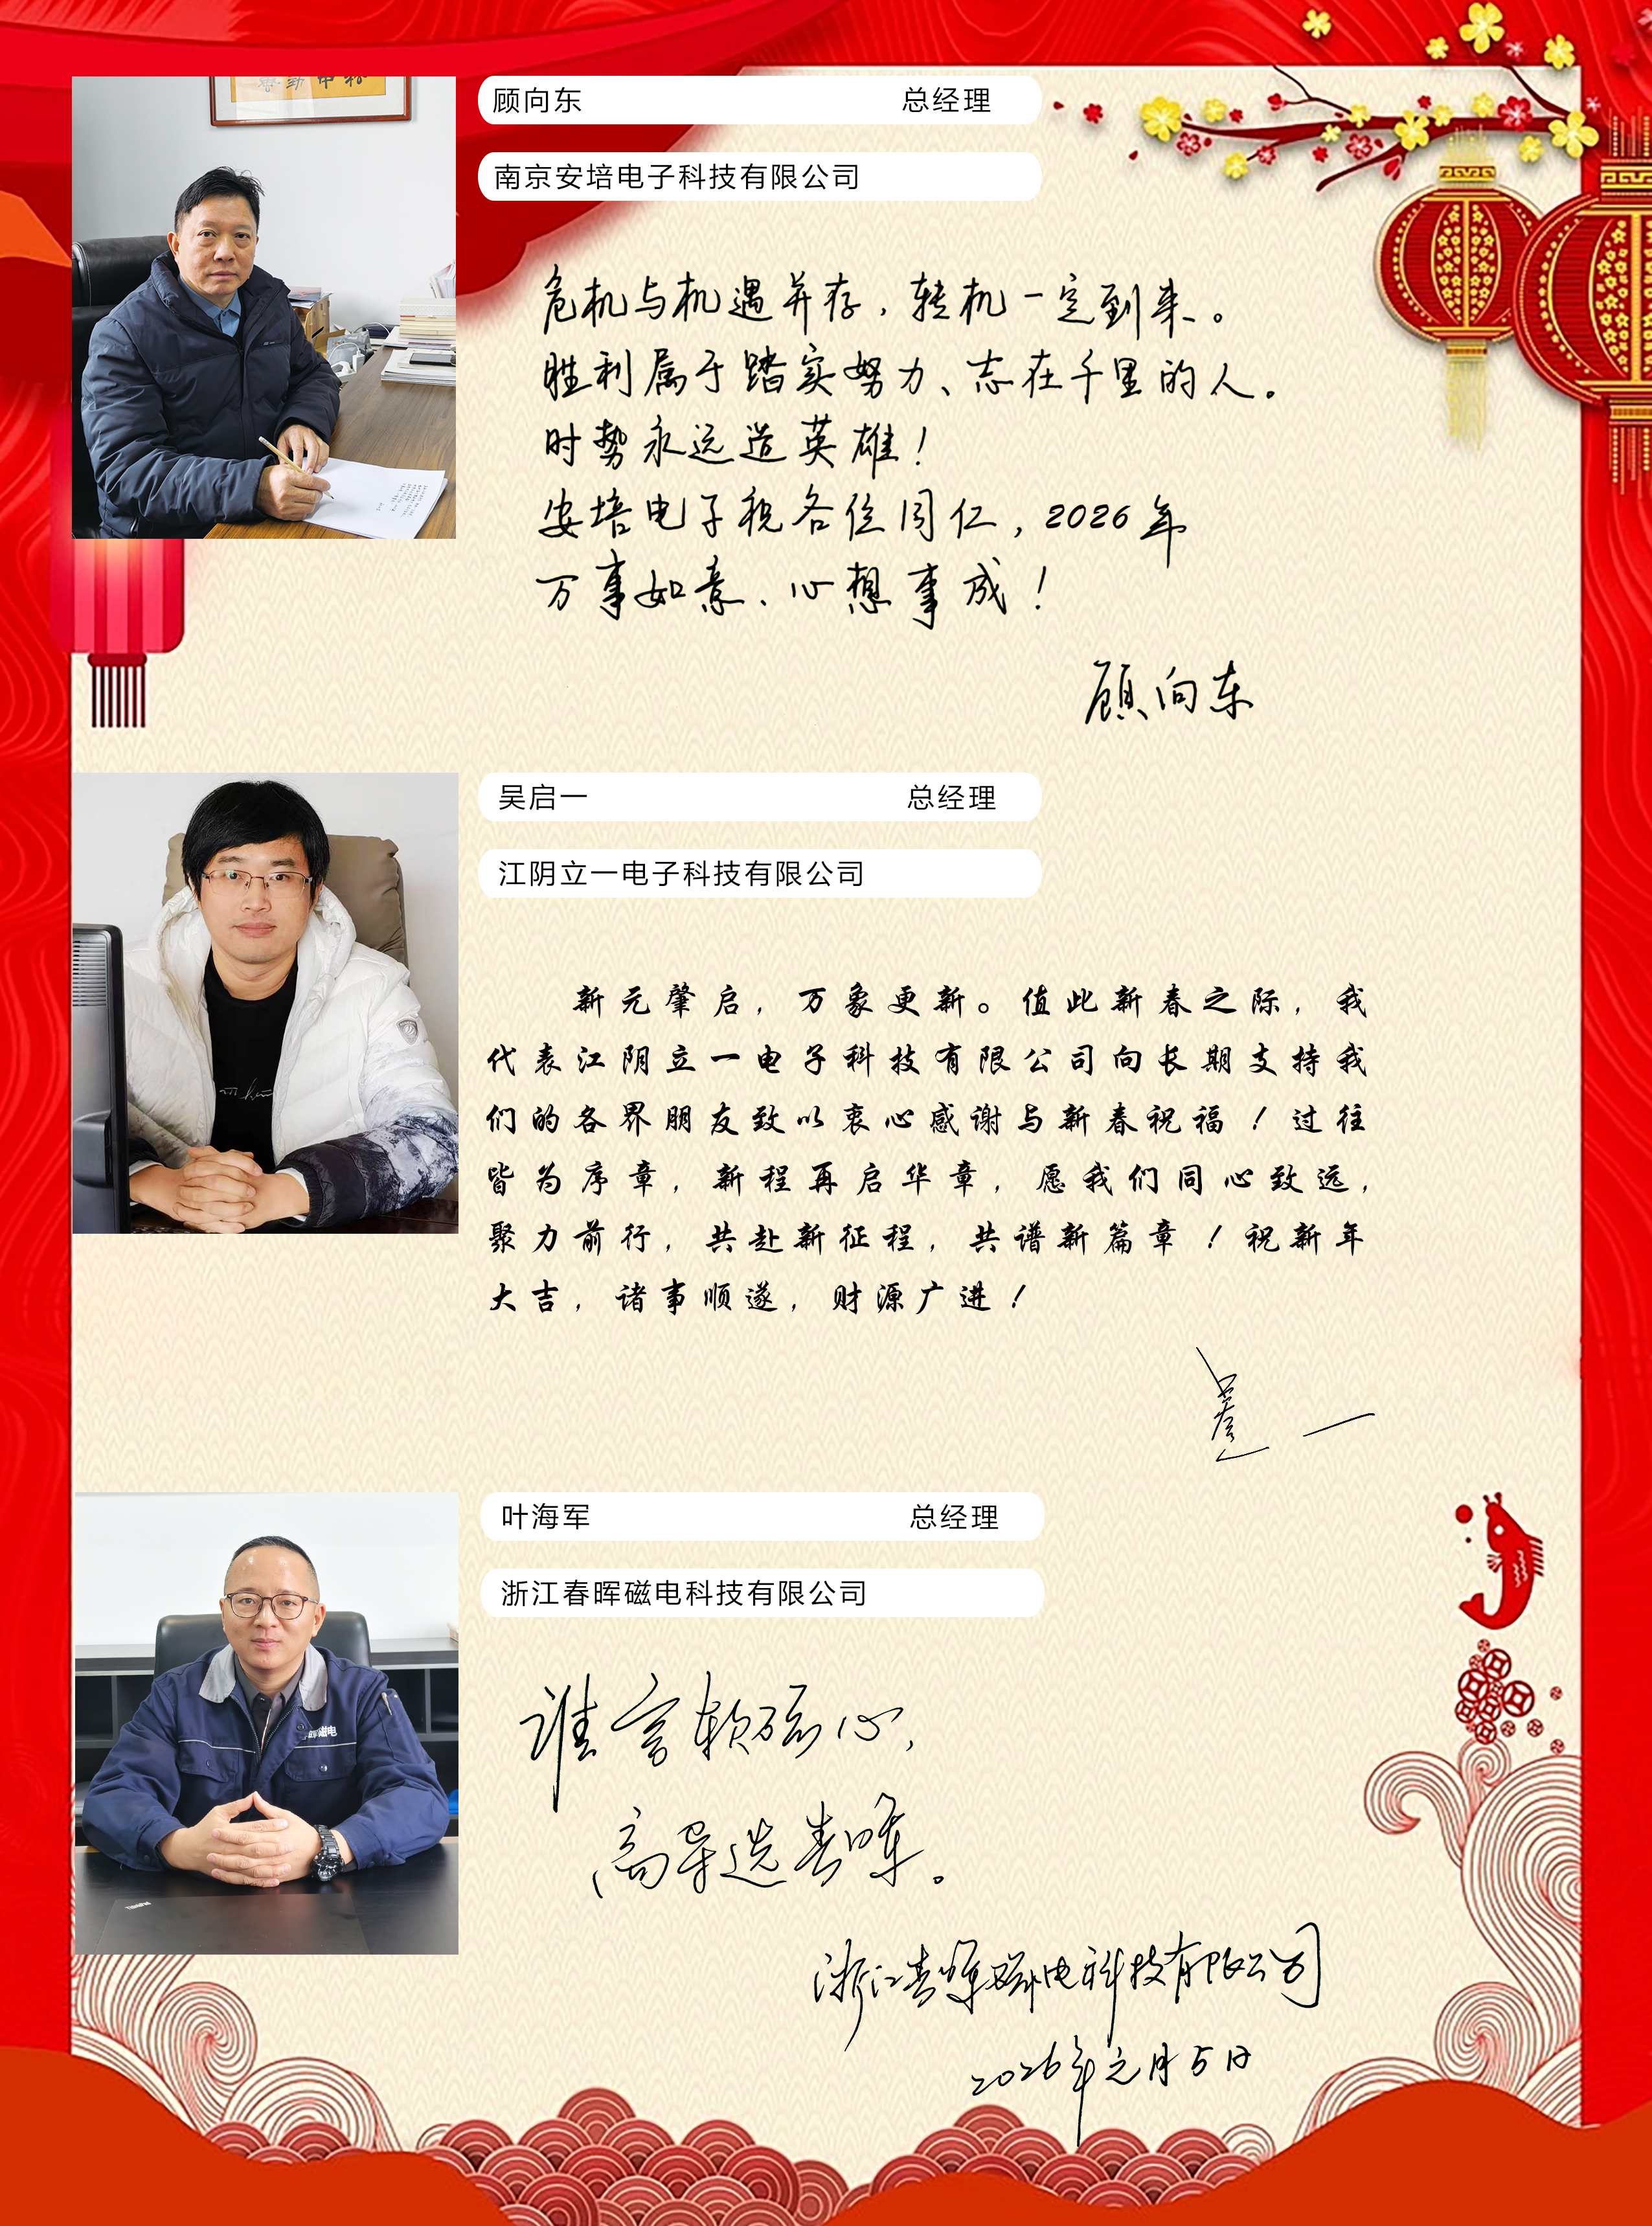 顾向东 总经理
南京安培电子科技有限公司
危机与机遇并存，转机一定到来。
胜利属于踏实努力、志在千里的人。
时势永远造英雄！
安培电子祝各位同仁，2026年
万事如意、心想事成！
顾向东
吴启一 总经理
江阴立一电子科技有限公司
新元肇启，万象更新。值此新春之际，我
代表江阴立一电子科技有限公司向长期支持我
们的各界朋友致以衷心感谢与新春祝福！过往
皆为序章，新程再启华章，愿我们同心致远，
聚力前行，共赴新征程，共谱新篇章！祝新年
大吉，诸事顺遂，财源广进！
吴启一
叶海军 总经理
浙江春晖磁电科技有限公司
磁电
谁言软磁心，
高导选春晖。
浙江春晖磁电科技有限公司
2026年元月5日